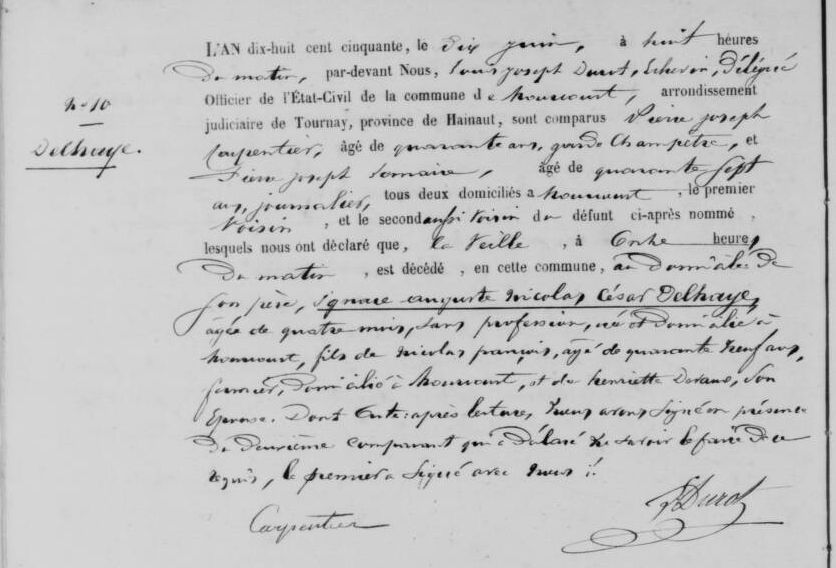 L'AN dix-huit cent cinquante, le dix juin, à huit heures
du matin, par-devant Nous, Louis joseph Durot, Echevin, Délégué
Officier de l'État-Civil de la commune de Mourcourt, arrondissement
judiciaire de Tournay, province de Hainaut, sont comparus Pierre joseph
Carpentier, âgé de quarante ans, garde Champêtre, et
Pierre joseph Lemaire, âgé de quarante sept
ans, journalier, tous deux domiciliés a Mourcourt, le premier
Voisin, et le second aussi Voisin du défunt ci-après nommé,
lesquels nous ont déclaré que, la Veille, à Onze heures
Du matin, est décédé, en cette commune, au Domicile de
son père, Ignace auguste Nicolas César Delhaye,
âgée de quatre mois, sans profession, né et Domicilié à
Mourcourt, fils de Nicolas françois, âgé de quarante Neuf ans,
fermier, Domicilié à Mourcourt, et de henriette, Son
Epouse. Dont Acte: après lecture, Nous avons Signé en présence
Du Deuxième comparant qui a Déclaré Ne savoir le faire De ce
requis, le premier a Signé avec Nous :
N.o 10
Delhaye.
Carpentier
Durot